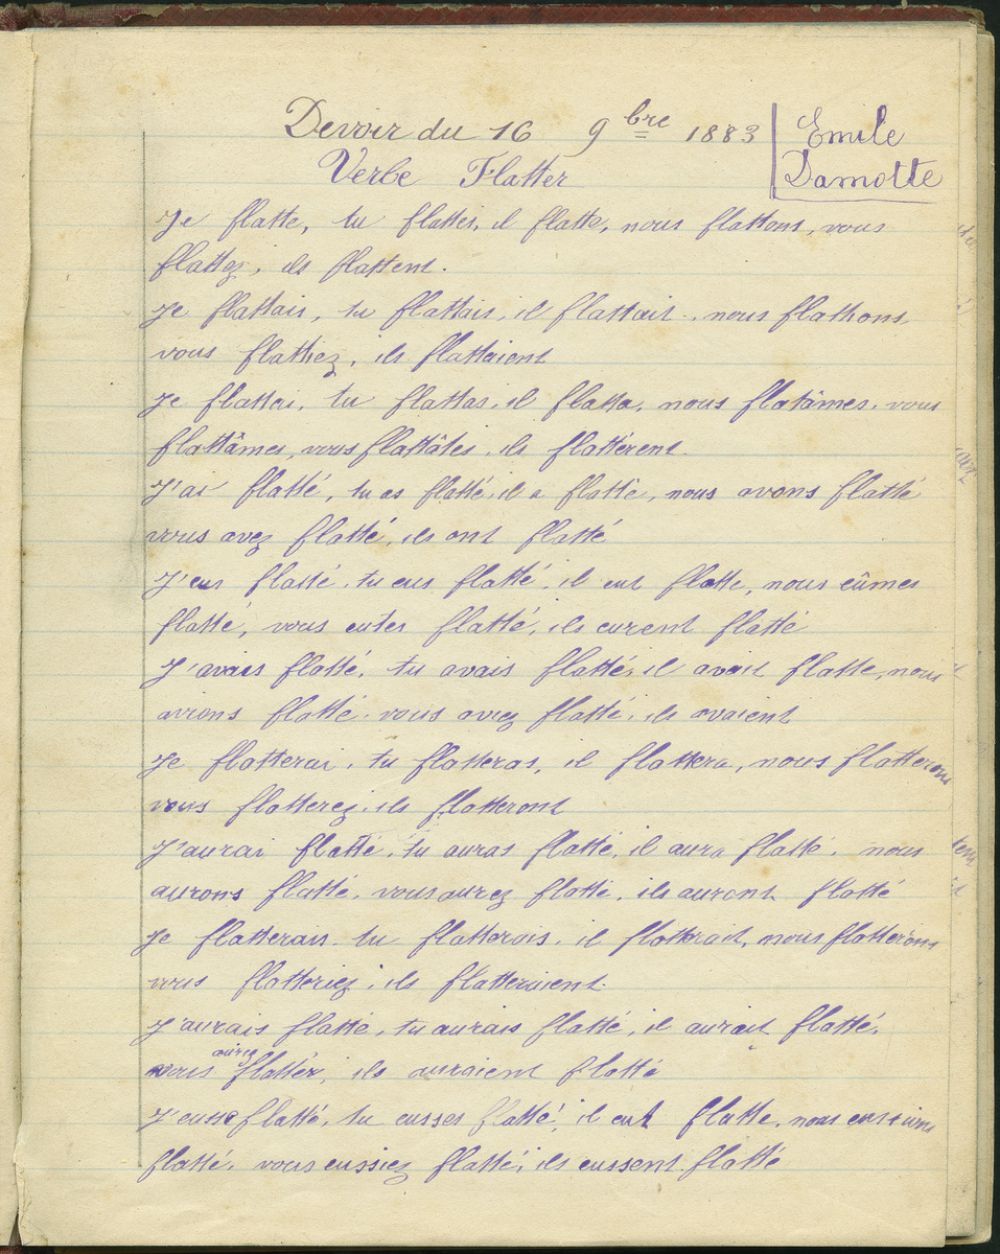 Devoir du 16 9bre 1883
Emile
Damotte
Verbe Flatter
Je flatte, tu flattes, il flatte, nous flattons, vous
flattez, ils flattent.
Je flattais, tu flattais, il flattait, nous flattions,
vous flattiez, ils flattaient
Je flattai, tu flattas, il flatta, nous flatâmes, vous
flattâmes, vous flattâtes, ils flattèrent.
J'ai flatté, tu as flatté, il a flatté, nous avons flatté
vous avez flatté, ils ont flatté
J'eus flatté, tu eus flatté, il eut flatte, nous eûmes
flatté, vous eutes flatté, ils eurent flatté
J'avais flatté, tu avais flatté, il avait flatte, nous
avions flatté, vous aviez flatté, ils avaient
Je flatterai, tu flatteras, il flattera, nous flatterons
vous flatterez, ils flatteront
J'aurai flatté, tu auras flatté, il aura flatté, nous
aurons flatté, vous aurez flatté, ils auront flatté
Je flatterais, tu flatterais, il flatterait, nous flatterions
vous flatteriez, ils flatteraient.
J'aurais flatté, tu aurais flatté, il aurait flatté,
vous auriez flattér, ils auraient flatté
J'eusse flatté, tu eusses flatté, il eut flatte, nous eussions
flatté, vous eussiez flatté, ils eussent flatté